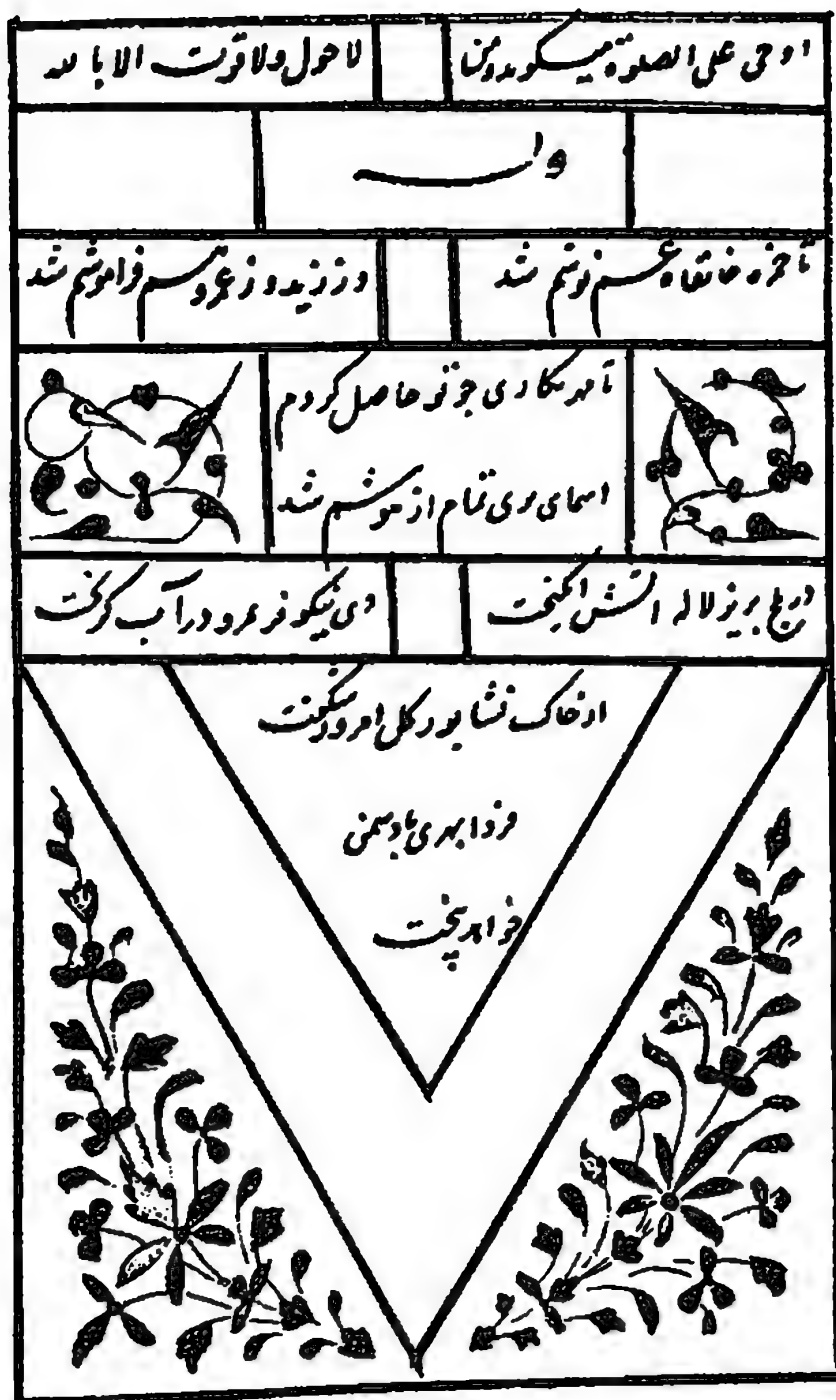 او حی علی الصلوة میکوید و من لا حول ولا قوت الا بالله
وله
تا خانقاه غم نوشم شد و ز زید و ز عمرو فراموشم شد
تا مهر نگاری چو تو حاصل کردم
اسمای بری تمام از هوشم شد
لاله اتش انگیخت دی نیلوفر در آب گریخت
از خاک نشابور گل امروز
فردا بهری باد سمن
خواهد بیخت